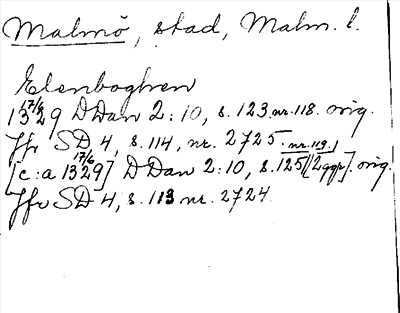 Malmö, stad, Malm. l.
Elenboghen
13 17/6 29 DDan 2:10, s. 123. nr. 118. orig.
Jfr SD 4, s. 114, nr. 2725.
[c:a 13 17/6 29] DDan 2:10, s. 125 nr. 119. [2 ggr]. orig.
Jfr SD 4, s. 113 nr. 2724.